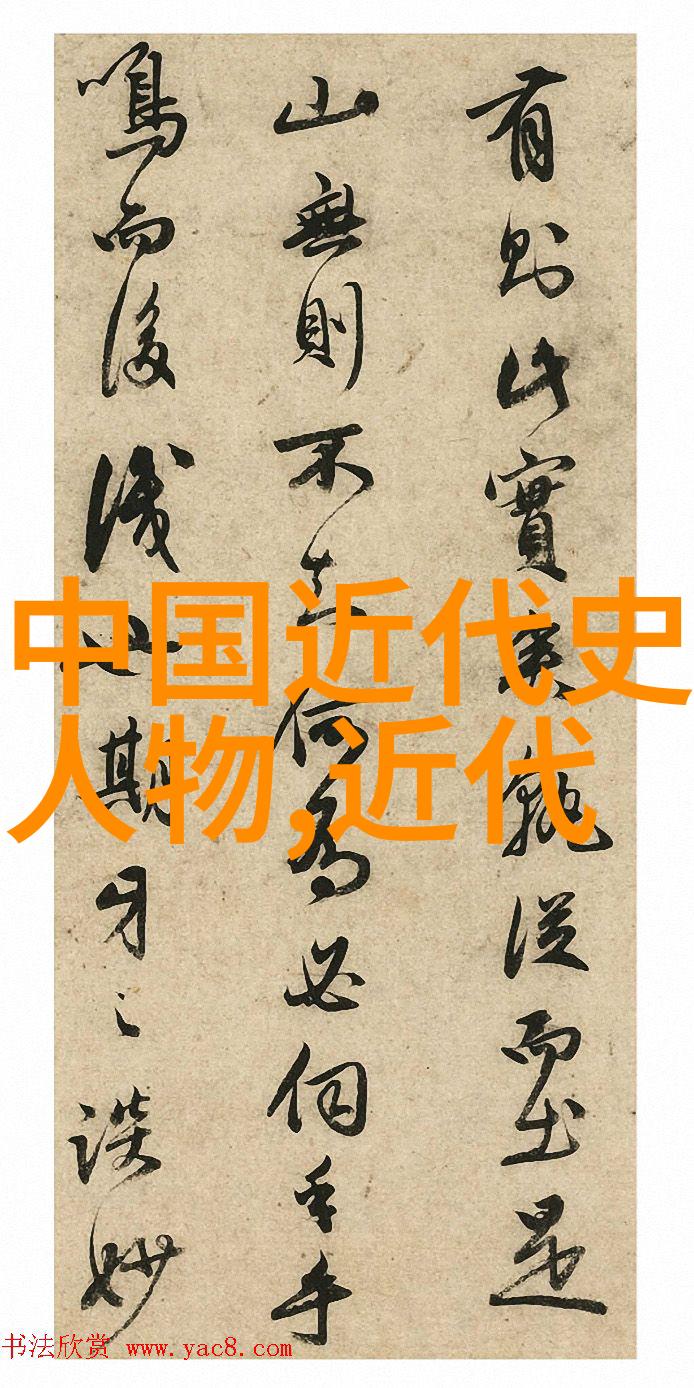 有則此實孰從而出是
山無則不立何為必何手
鳴而後識期牙之談妙
中国近代史
人物,近代
书法欣赏 www.yac8.com